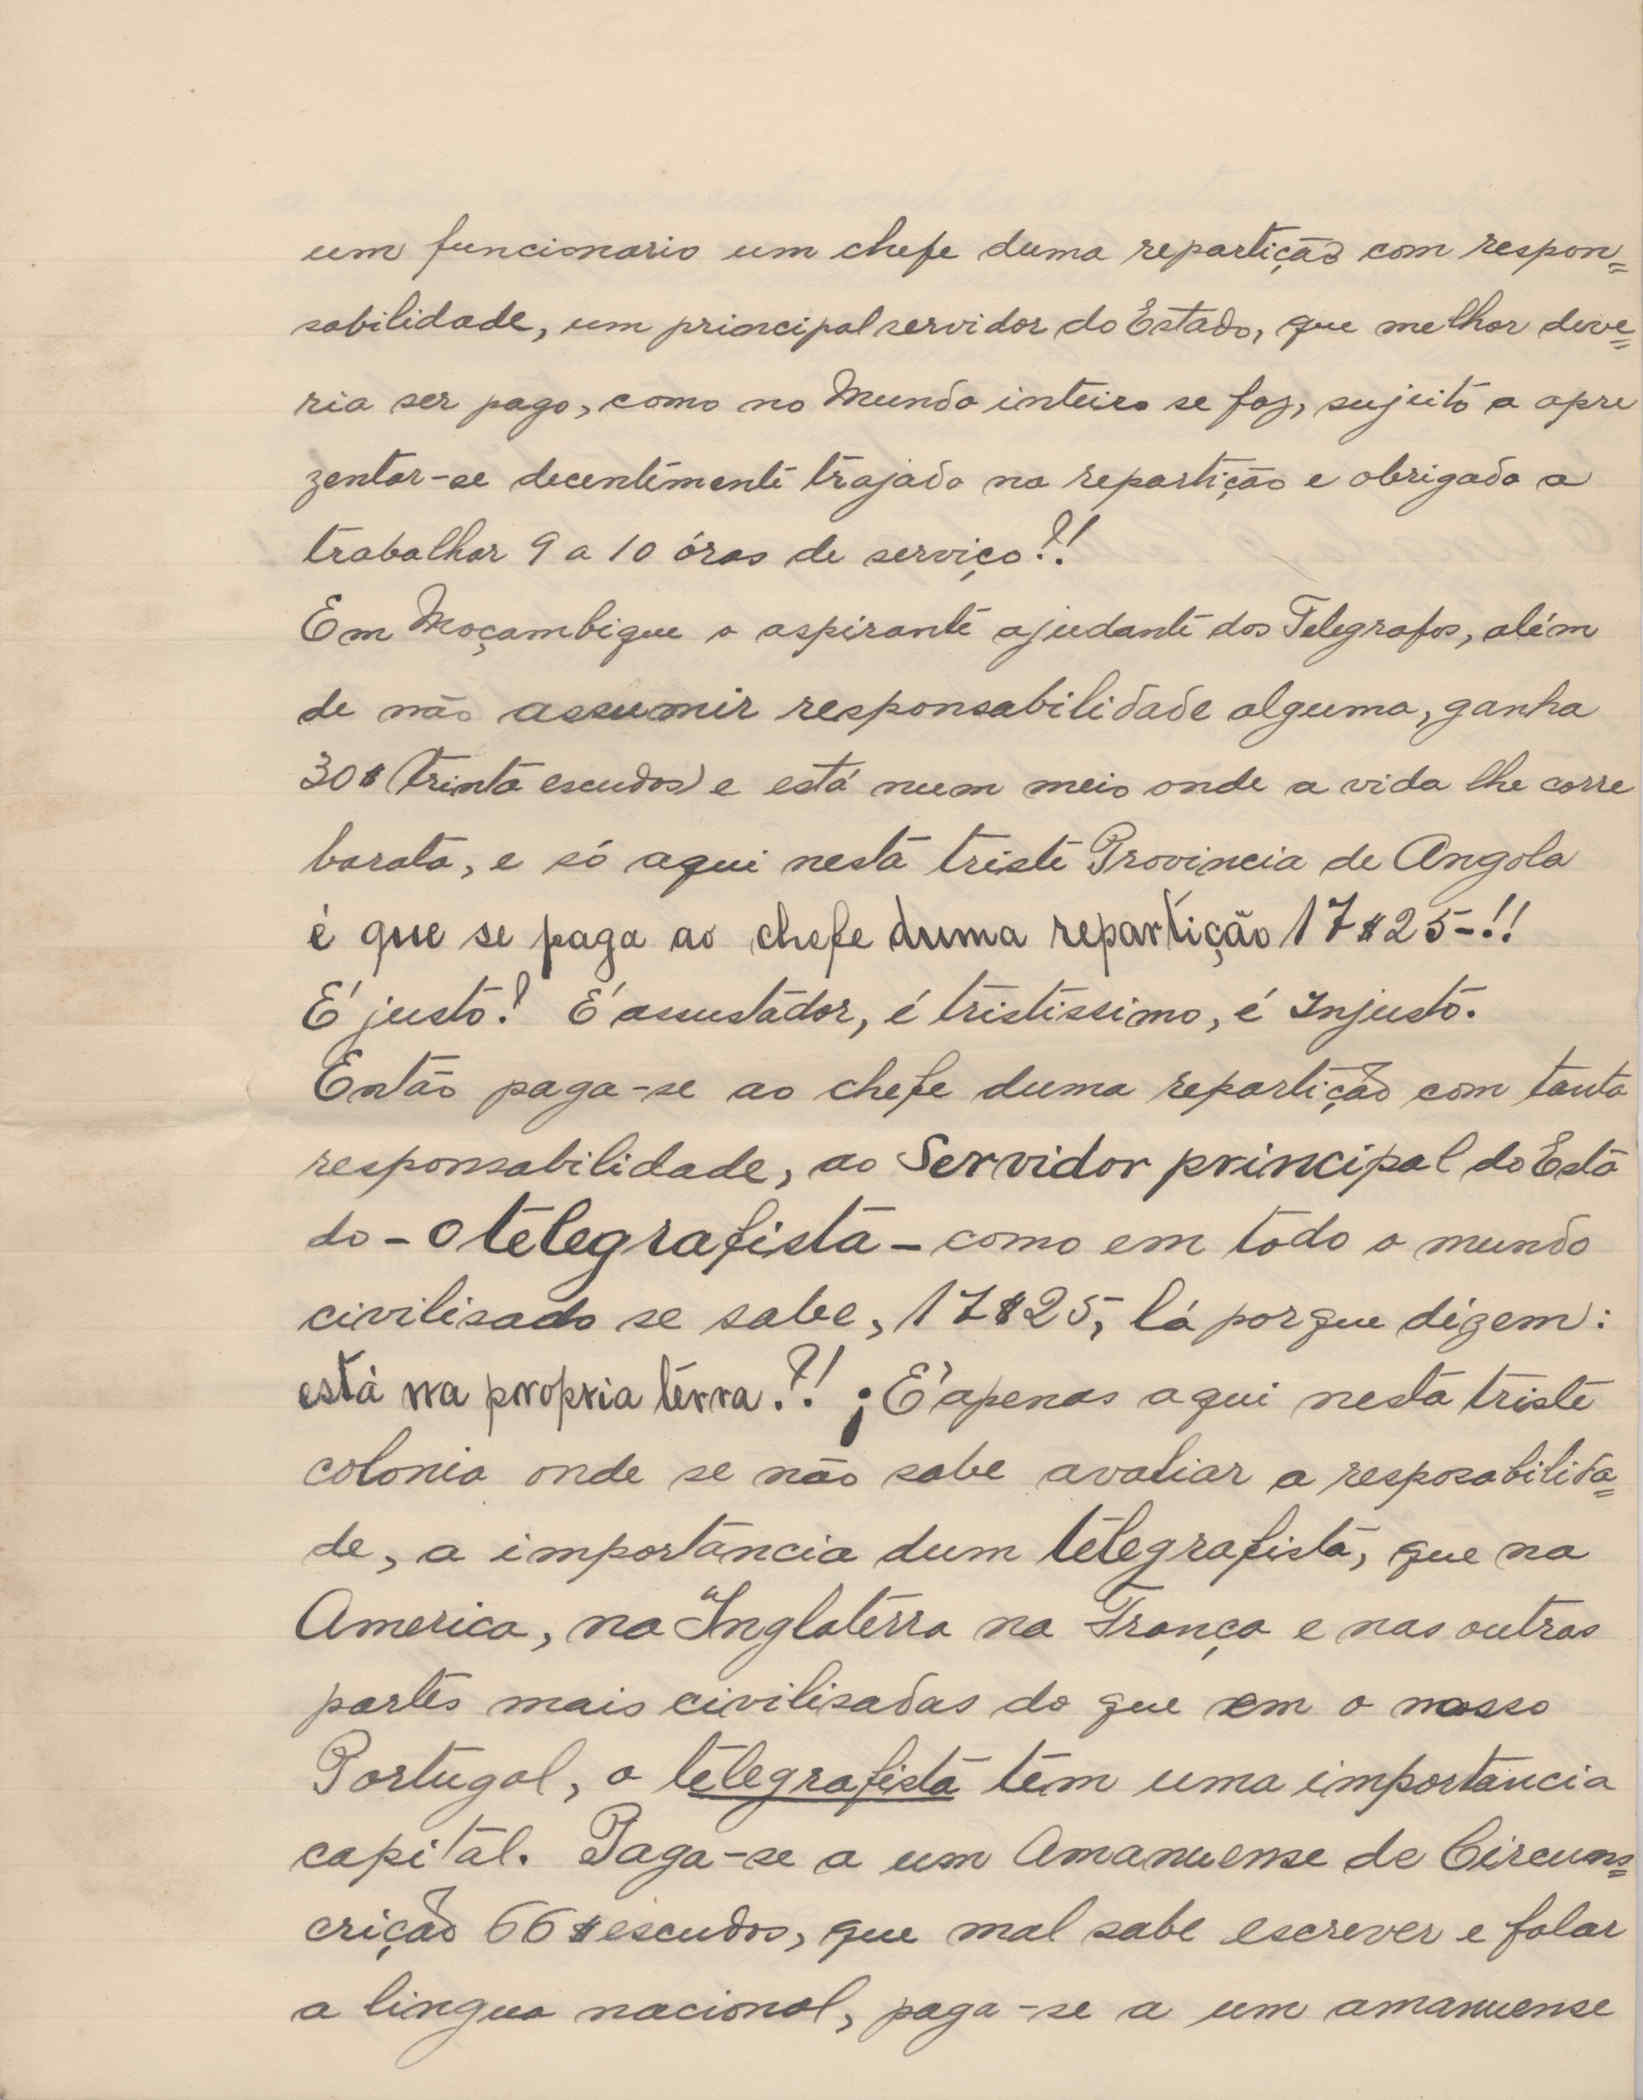 um funcionario um chefe duma repartição com respon=
sabilidade, um principal servidor do Estado, que melhor deve=
ria ser pago, como no Mundo inteiro se faz, sujeito a apre
zentar-se decentemente trajado na repartição e obrigado a
trabalhar 9 a 10 óras de serviço?!
Em Moçambique o aspirante ajudante dos Telegrafos, além
de não assumir responsabilidade alguma, ganha
30$ (trinta escudos) e está num meio onde a vida lhe corre
barata, e só aqui nesta triste Provincia de Angola
é que se paga ao chefe duma repartição 17$25-!!
E' justo? E' assustador, é tristissimo, é Injusto.
Então paga-se ao chefe duma repartição com tanta
responsabilidade, ao Servidor principal do Esta
do - O telegrafista - como em todo o mundo
civilisado se sabe, 17$25, lá porque dizem:
está na propria terra?! ¡E' apenas aqui nesta triste
colonia onde se não sabe avaliar a resposabilida=
de, a importancia dum telegrafista, que na
America, na Inglaterra na França e nas outras
partes mais civilisadas do que em o nosso
Portugal, o telegrafista tem uma importancia
capital. Paga-se a um Amanuense de Circuns=
crição 66$ escudos, que mal sabe escrever e falar
a lingua nacional, paga-se a um amanuense